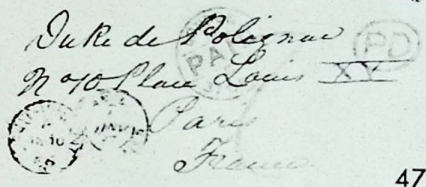 Duke de Polignac
No 10 Place Louis XV
Paris
France
PD
PAI
47